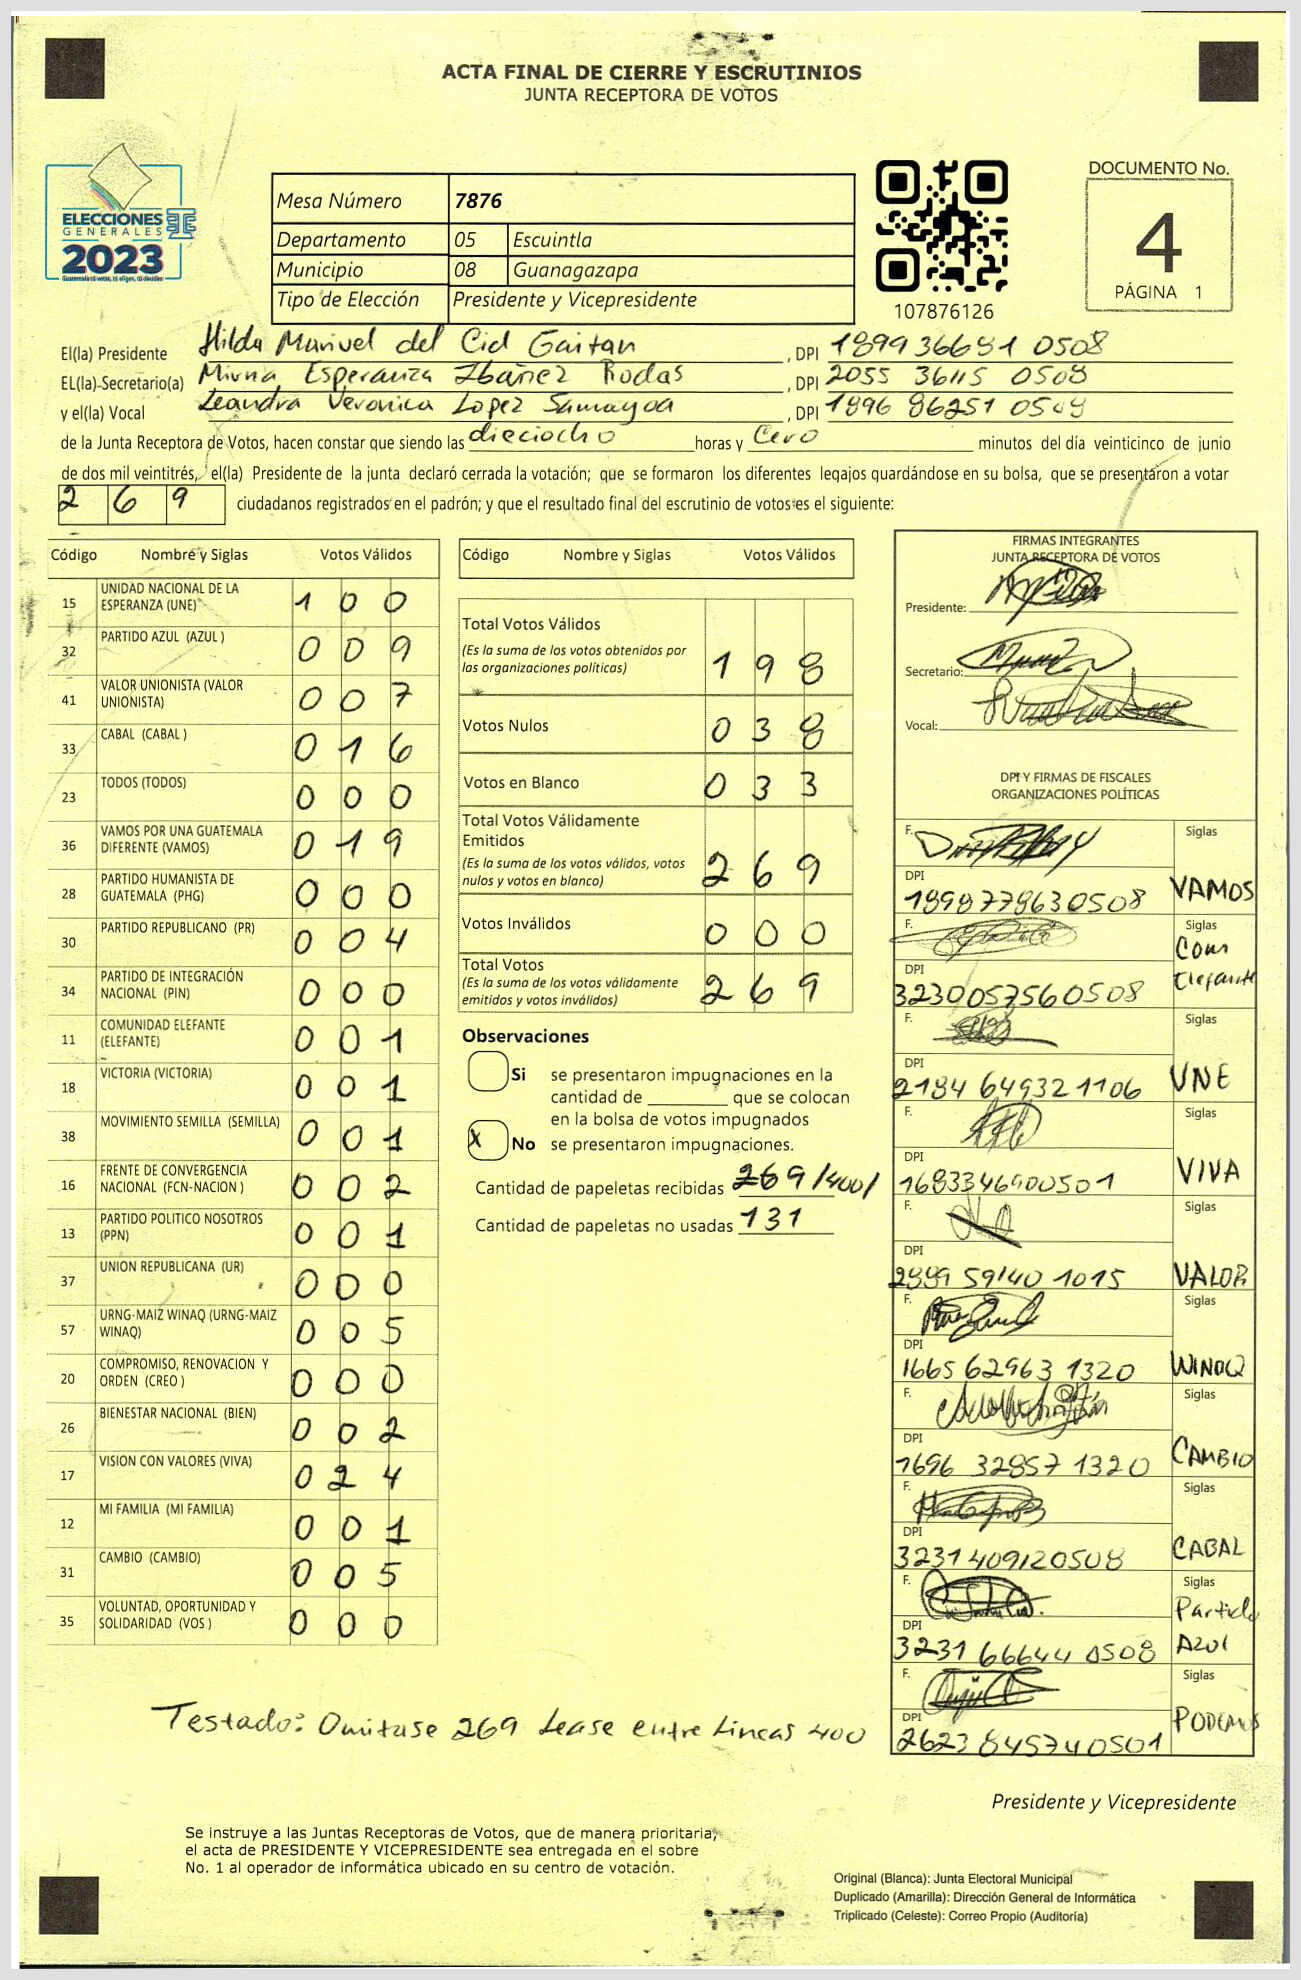 ACTA FINAL DE CIERRE Y ESCRUTINIOS
JUNTA RECEPTORA DE VOTOS
ELECCIONES
GENERALES
2023
Guatemala tú votas, tú eliges, tú decides
Mesa Número 7876
Departamento 05 Escuintla
Municipio 08 Guanagazapa
Tipo de Elección Presidente y Vicepresidente
107876126
DOCUMENTO No.
4
PÁGINA 1
El(la) Presidente Hilda Marivel del Cid Gaitan, DPI 1899 36681 0508
EL(la) Secretario(a) Mirna Esperanza Ibañez Rodas, DPI 2055 36115 0508
y el(la) Vocal Leandra Veronica Lopez Samayoa, DPI 1896 86251 0508
de la Junta Receptora de Votos, hacen constar que siendo las dieciocho horas y Cero minutos del día veinticinco de junio
de dos mil veintitrés, el(la) Presidente de la junta declaró cerrada la votación; que se formaron los diferentes legajos guardándose en su bolsa, que se presentaron a votar
2 6 9 ciudadanos registrados en el padrón; y que el resultado final del escrutinio de votos es el siguiente:
Código Nombre y Siglas Votos Válidos
15 UNIDAD NACIONAL DE LA ESPERANZA (UNE) 1 0 0
32 PARTIDO AZUL (AZUL ) 0 0 9
41 VALOR UNIONISTA (VALOR UNIONISTA) 0 0 7
33 CABAL (CABAL ) 0 1 6
23 TODOS (TODOS) 0 0 0
36 VAMOS POR UNA GUATEMALA DIFERENTE (VAMOS) 0 1 9
28 PARTIDO HUMANISTA DE GUATEMALA (PHG) 0 0 0
30 PARTIDO REPUBLICANO (PR) 0 0 4
34 PARTIDO DE INTEGRACIÓN NACIONAL (PIN) 0 0 0
11 COMUNIDAD ELEFANTE (ELEFANTE) 0 0 1
18 VICTORIA (VICTORIA) 0 0 1
38 MOVIMIENTO SEMILLA (SEMILLA) 0 0 1
16 FRENTE DE CONVERGENCIA NACIONAL (FCN-NACION ) 0 0 2
13 PARTIDO POLITICO NOSOTROS (PPN) 0 0 1
37 UNION REPUBLICANA (UR) 0 0 0
57 URNG-MAIZ WINAQ (URNG-MAIZ WINAQ) 0 0 5
20 COMPROMISO, RENOVACION Y ORDEN (CREO ) 0 0 0
26 BIENESTAR NACIONAL (BIEN) 0 0 2
17 VISION CON VALORES (VIVA) 0 2 4
12 MI FAMILIA (MI FAMILIA) 0 0 1
31 CAMBIO (CAMBIO) 0 0 5
35 VOLUNTAD, OPORTUNIDAD Y SOLIDARIDAD (VOS ) 0 0 0
Código Nombre y Siglas Votos Válidos
Total Votos Válidos
(Es la suma de los votos obtenidos por
las organizaciones políticas) 1 9 8
Votos Nulos 0 3 8
Votos en Blanco 0 3 3
Total Votos Válidamente
Emitidos
(Es la suma de los votos válidos, votos
nulos y votos en blanco) 2 6 9
Votos Inválidos 0 0 0
Total Votos
(Es la suma de los votos válidamente
emitidos y votos inválidos) 2 6 9
Observaciones
Si se presentaron impugnaciones en la
cantidad de ________ que se colocan
en la bolsa de votos impugnados
X No se presentaron impugnaciones.
Cantidad de papeletas recibidas 269 /400/
Cantidad de papeletas no usadas 131
FIRMAS INTEGRANTES
JUNTA RECEPTORA DE VOTOS
Presidente:
Secretario:
Vocal:
DPI Y FIRMAS DE FISCALES
ORGANIZACIONES POLÍTICAS
F. Siglas
DPI 1898778630508 VAMOS
F. Siglas
DPI 3230057560508 Com Elefante
F. Siglas
DPI 2184 64932 1106 UNE
F. Siglas
DPI 1683346900501 VIVA
F. Siglas
DPI 2889 59140 1015 VALOR
F. Siglas
DPI 1665 62963 1320 WINAQ
F. Siglas
DPI 1696 32857 1320 CAMBIO
F. Siglas
DPI 3231409120508 CABAL
F. Siglas
DPI 3231 66644 0508 Partido Azul
F. Siglas
DPI 2623 845740501 PODEMOS
Testado: Omitase 269 Lease entre Lineas 400
Presidente y Vicepresidente
Se instruye a las Juntas Receptoras de Votos, que de manera prioritaria,
el acta de PRESIDENTE Y VICEPRESIDENTE sea entregada en el sobre
No. 1 al operador de informática ubicado en su centro de votación.
Original (Blanca): Junta Electoral Municipal
Duplicado (Amarilla): Dirección General de Informática
Triplicado (Celeste): Correo Propio (Auditoría)